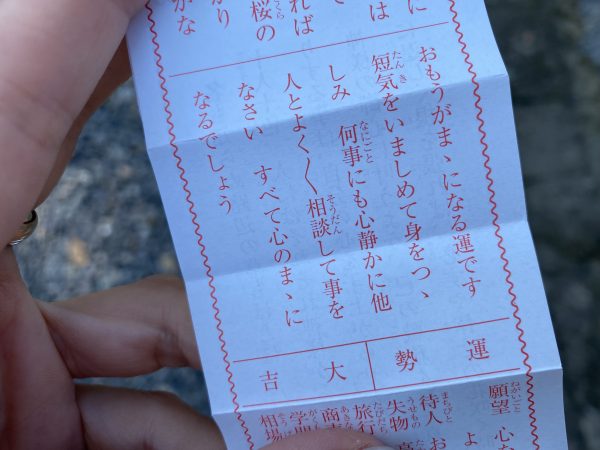 に
は
れば
桜の
り
な
おもうがまゝになる運です
短気をいましめて身をつゝ
しみ　何事にも心静かに他
人とよく〱相談して事を
なさい　すべて心のまゝに
なるでしょう
運勢
大吉
願望 心
よ
待人 お
失物
旅行
商
学
相場